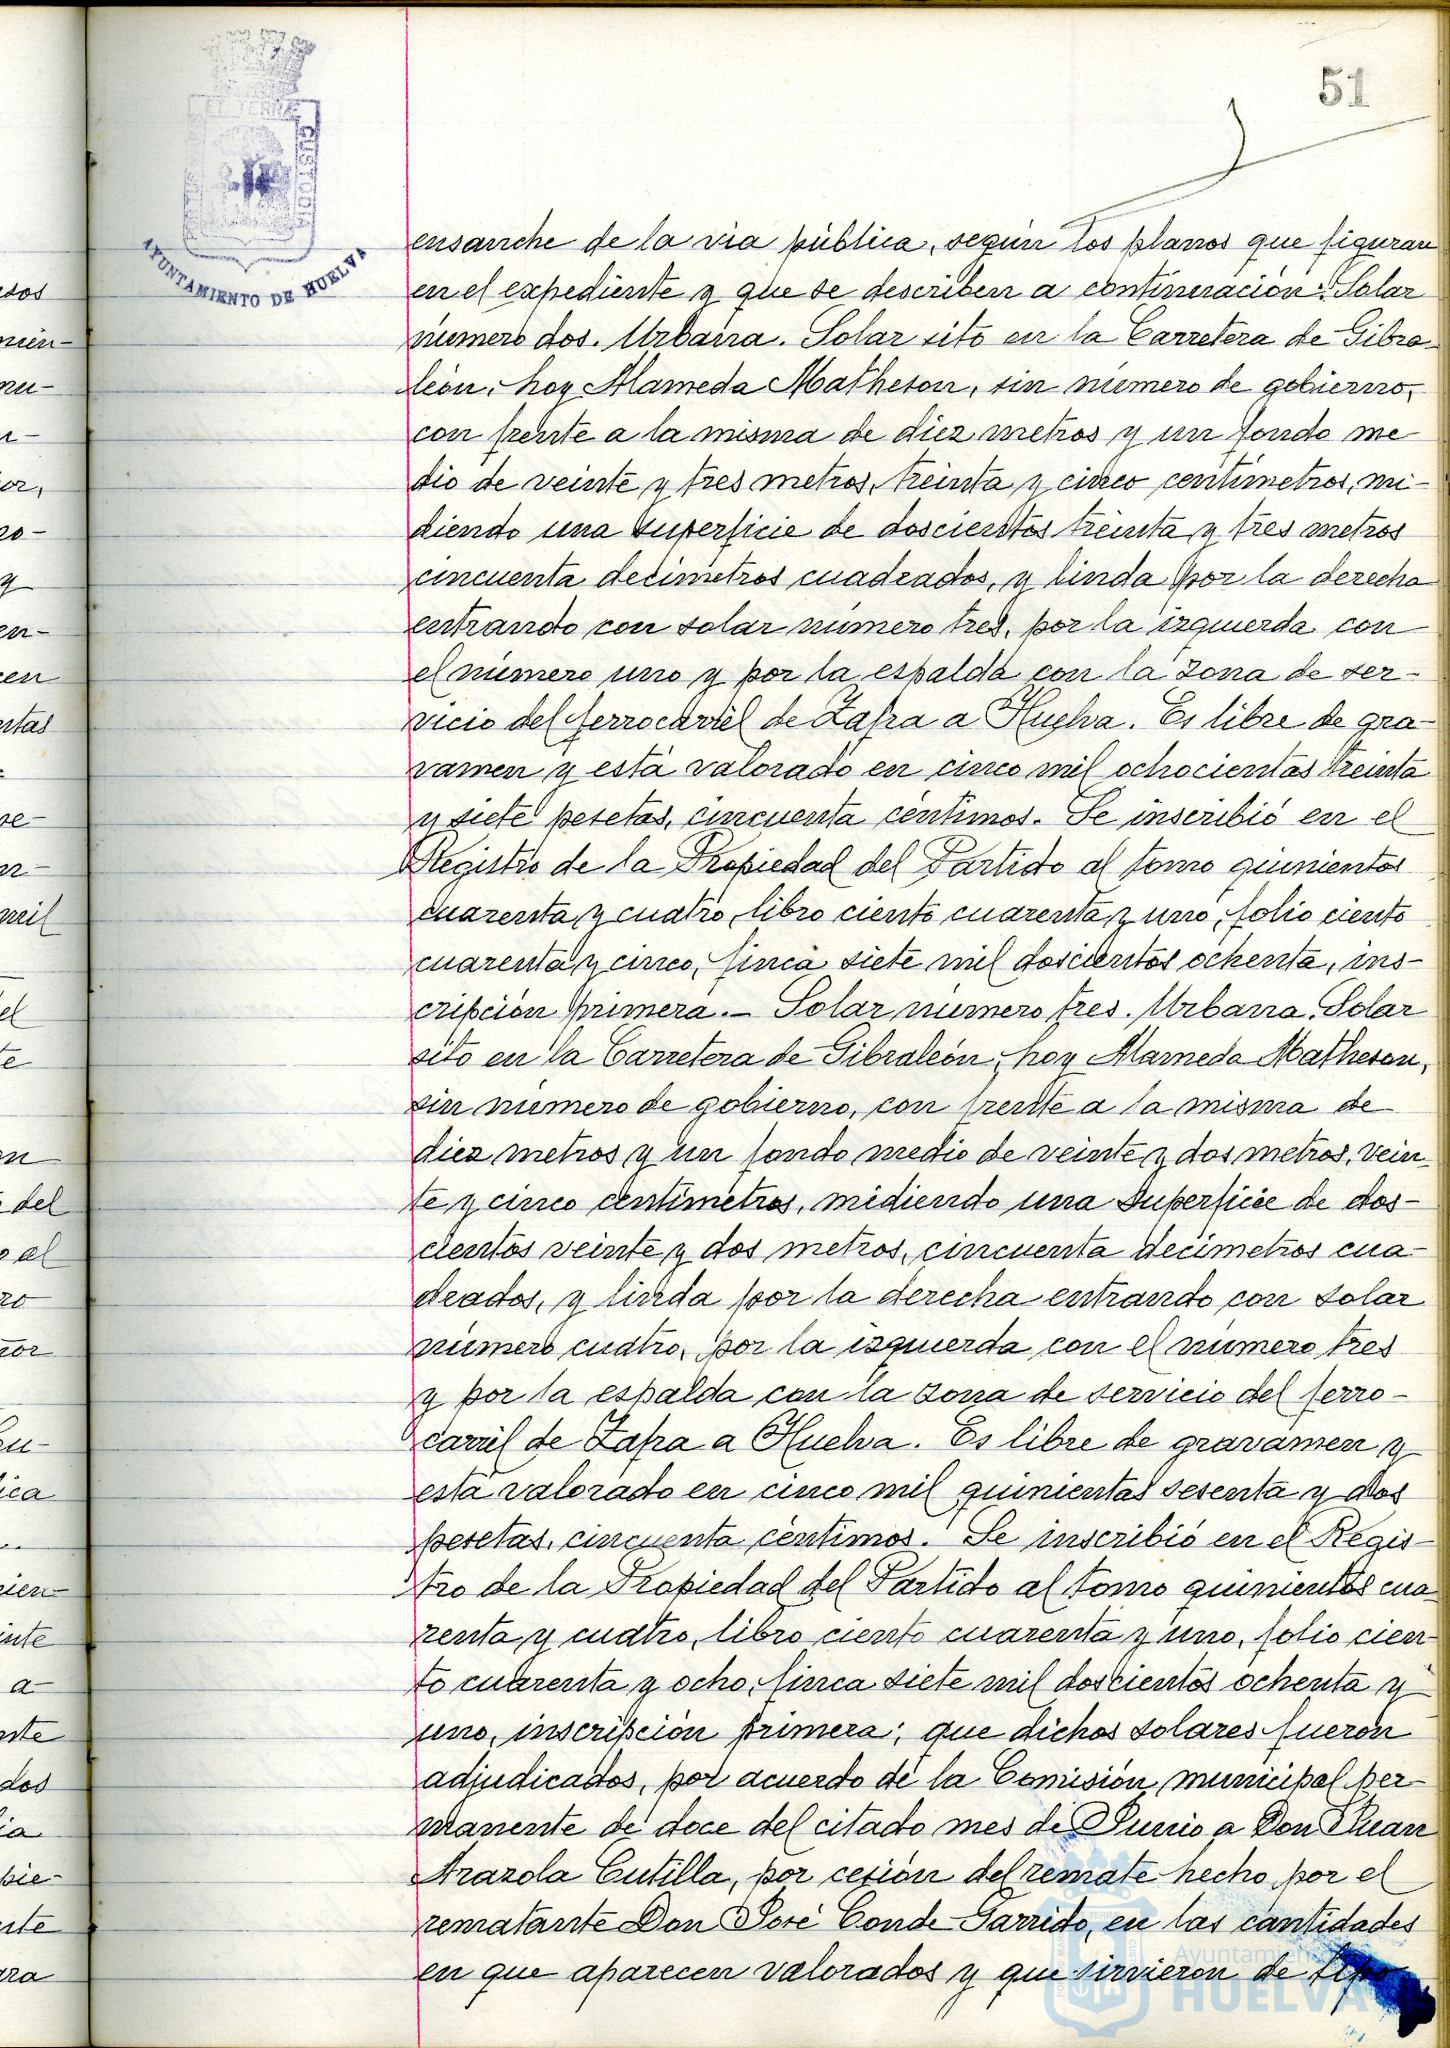 51
AYUNTAMIENTO DE HUELVA
ensanche de la via pública, según los planos que figuran
en el expediente y que se describen a continuación: Solar
número dos. Urbana. Solar sito en la Carretera de Gibra-
león, hoy Alameda Matheson, sin número de gobierno,
con frente a la misma de diez metros y un fondo me-
dio de veinte y tres metros, treinta y cinco centímetros, mi-
diendo una superficie de doscientos treinta y tres metros
cincuenta decimetros cuadrados, y linda por la derecha
entrando con solar número tres, por la izquierda con
el número uno y por la espalda con la zona de ser-
vicio del ferrocarril de Zafra a Huelva. Es libre de gra-
vamen y está valorado en cinco mil ochocientas treinta
y siete pesetas, cincuenta céntimos. Se inscribió en el
Registro de la Propiedad del Partido al tomo quinientos
cuarenta y cuatro, libro ciento cuarenta y uno, folio ciento
cuarenta y cinco, finca siete mil doscientos ochenta, ins-
cripción primera.- Solar número tres. Urbana. Solar
sito en la Carretera de Gibraleón, hoy Alameda Matheson,
sin número de gobierno, con frente a la misma de
diez metros y un fondo medio de veinte y dos metros, vein-
te y cinco centimetros, midiendo una superficie de dos-
cientos veinte y dos metros, cincuenta decimetros cua-
drados, y linda por la derecha entrando con solar
número cuatro, por la izquierda con el número tres
y por la espalda con la zona de servicio del ferro-
carril de Zafra a Huelva. Es libre de gravamen y
está valorado en cinco mil quinientas sesenta y dos
pesetas, cincuenta céntimos. Se inscribió en el Regis-
tro de la Propiedad del Partido al tomo quinientos cua-
renta y cuatro, libro ciento cuarenta y uno, folio cien-
to cuarenta y ocho, finca siete mil doscientos ochenta y
uno, inscripción primera; que dichos solares fueron
adjudicados, por acuerdo de la Comisión municipal per-
manente de doce del citado mes de Junio a Don Juan
Arazola Cutilla, por cesión del remate hecho por el
rematante Don José Conde Garrido, en las cantidades
en que aparecen valorados y que sirvieron de tipo
Ayuntamiento
HUELVA